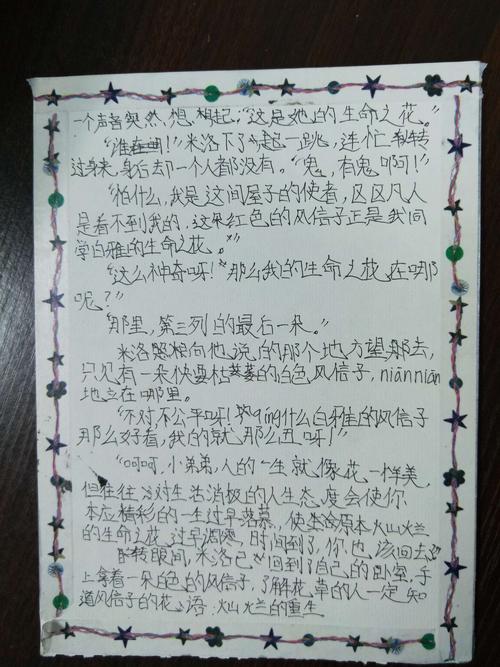 一个声音突然想起:"这是她的生命之花。"
"谁在曲!"米洛下了一跳,连忙转
过身来,身后却一个人都没有。"鬼,有鬼啊!"
"怕什么,我是这间屋子的使者,区区凡人
是看不到我的,这朵红色的风信子正是我同
学白雅的生命之花。"
"这么神奇呀!那么我的生命之花在哪
呢?"
"那里,第三列的最后一朵。"
米洛向他说的那个地方望去,
只见有一朵快要枯萎的白色风信子,niānniān
地立在哪里。
"不对,不公平呀!píng什么白雅的风信子
那么好看,我的就那么丑呀!"
"呵呵,小弟弟,人的一生就像花一样美,
但往往对生活消极的人生态度会使你
本应精彩的一生过早落幕,使原本火山火兰
的生命之花过早凋零,时间到了,你也该回去了
转眼间,米洛已回到了自己的卧室,手
上拿着一朵白色的风信子,了解花草的人一定知
道风信子的花语:火山火兰的重生